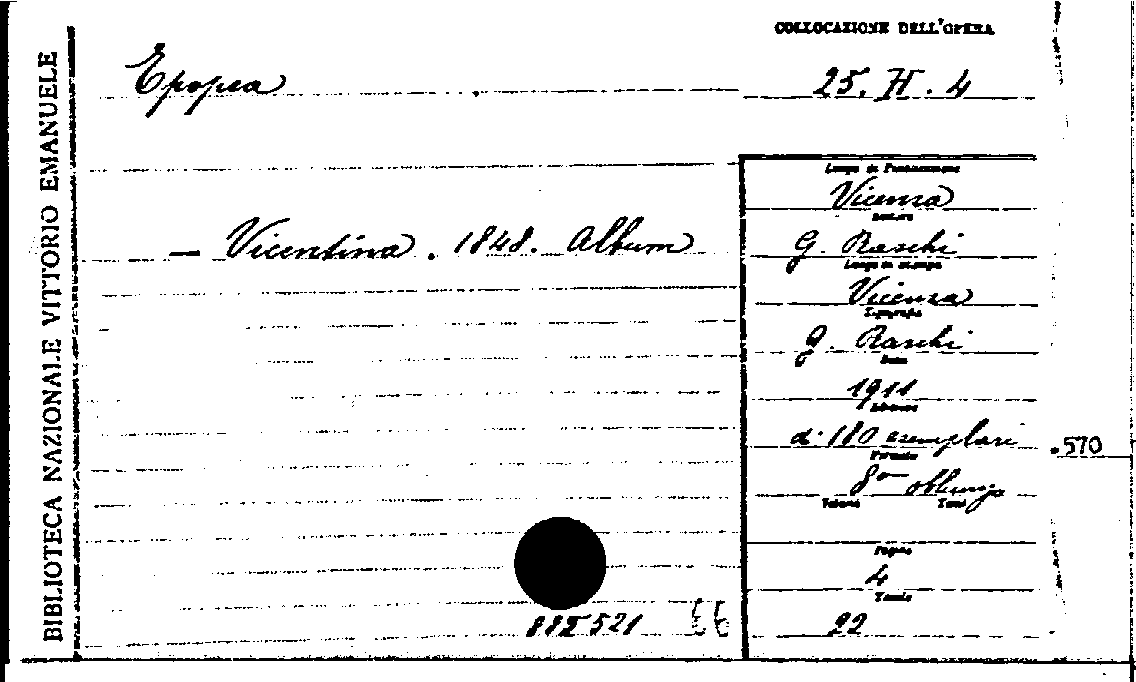 BIBLIOTECA NAZIONALE VITTORIO EMANUELE
COLLOCAZIONE DELL'OPERA
Epopea
25. H. 4
— Vicentina. 1848. Album
Vicenza
G. Raschi
Luogo di stampa
Vicenza
Tipografia
G. Raschi
Data
1911
di 180 esemplari
Formato
8° oblungo
Volumi Tomi
Pagine
4
Tavole
22
.570